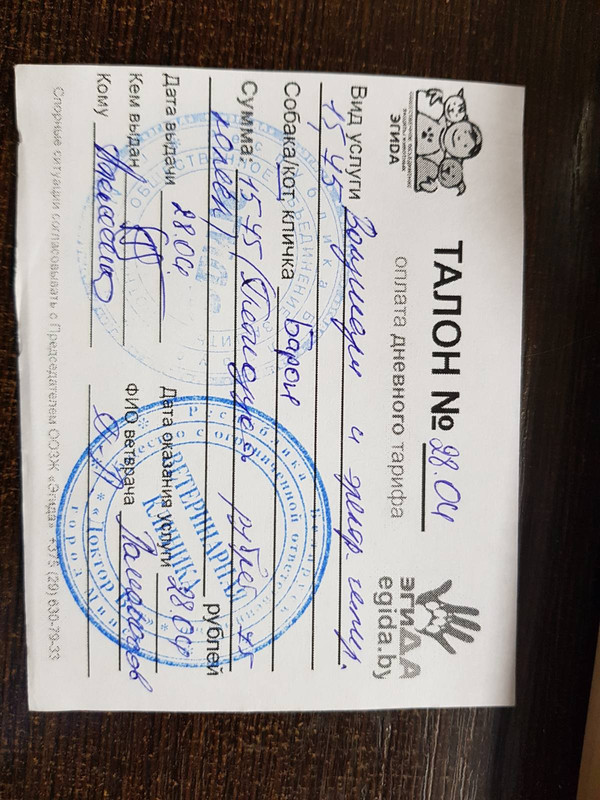 ЭГИДА
ТАЛОН № 28.04
оплата дневного тарифа
эгиДА
egida.by
Вид услуги
15,45
Собака/кот кличка Барон
Сумма: 15-45 (Пятнадцать рублей 45 рублей
копеек)
Дата выдачи 28.04 Дата оказания услуги 28.04
Кем выдан ФИО ветврача
Кому
Спорные ситуации согласовывать с Председателем ООЗЖ «Эгида» +375 (29) 630-79-33
Республика Беларусь
ВЕТЕРИНАРНАЯ
КЛИНИКА
«Доктор